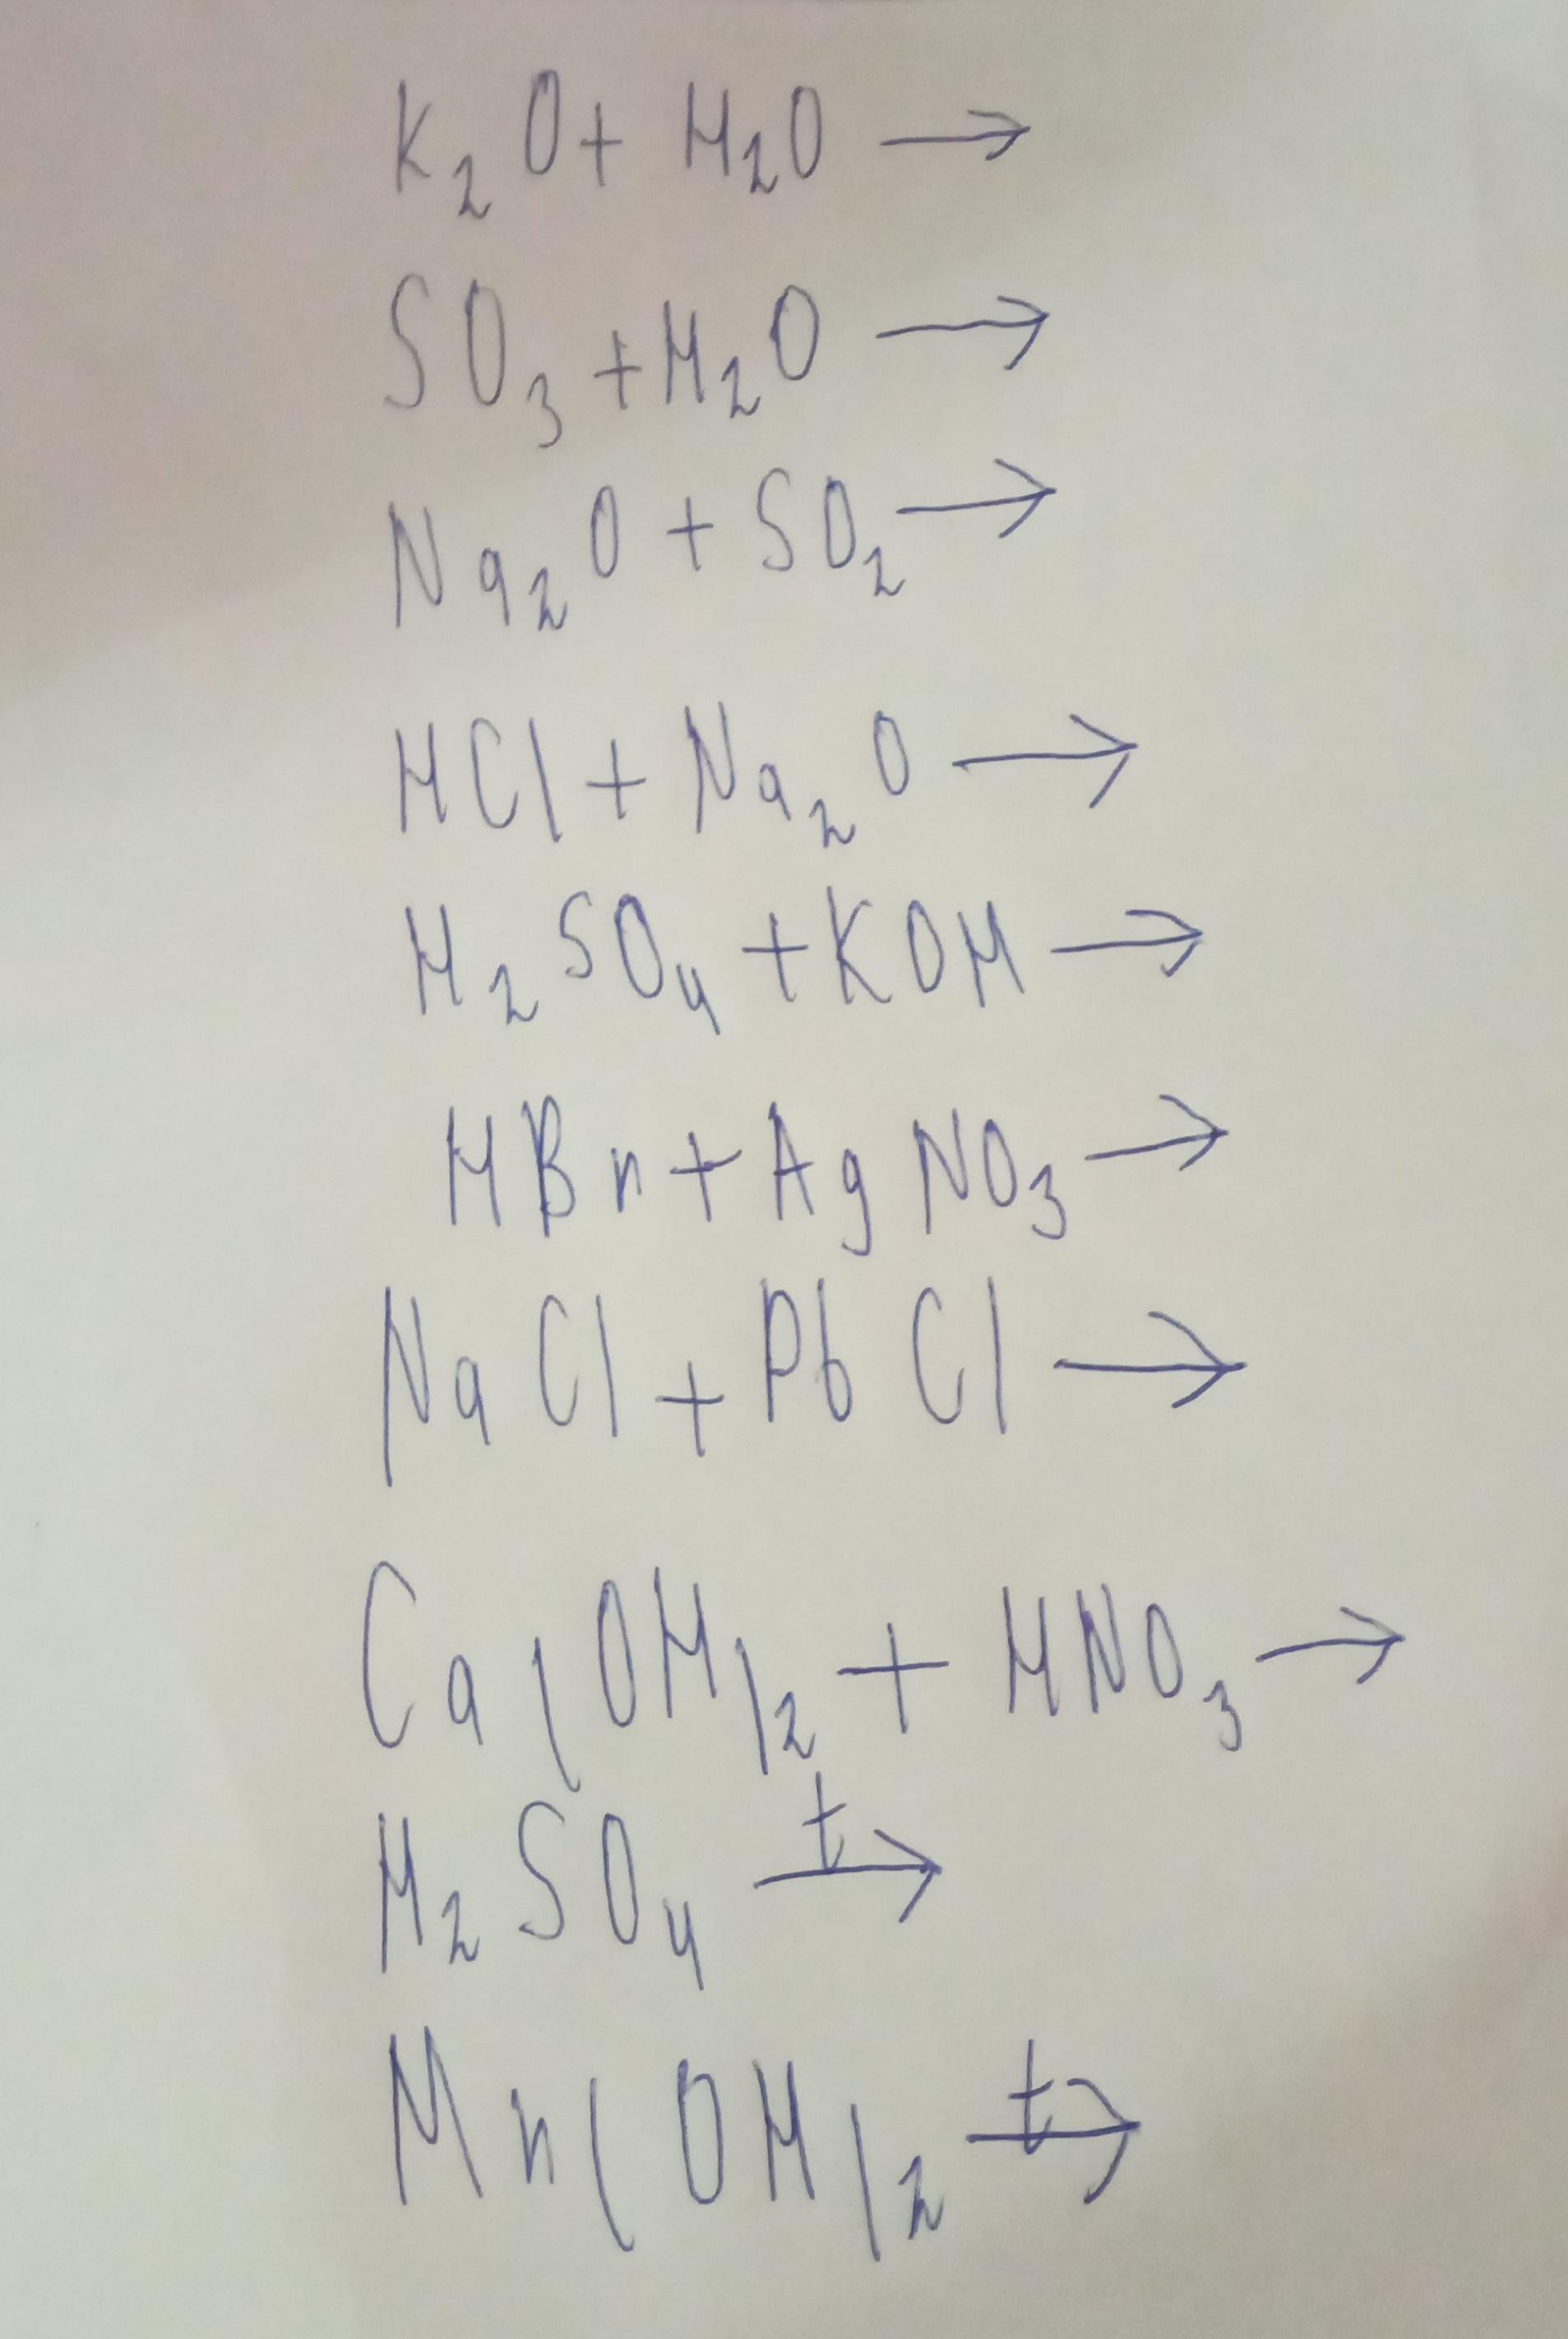 K₂O + H₂O →
SO₃ + H₂O →
Na₂O + SO₂ →
HCl + Na₂O →
H₂SO₄ + KOH →
HBr + AgNO₃ →
NaCl + PbCl →
Ca(OH)₂ + HNO₃ →
H₂SO₄ t→
Mn(OH)₂ t→